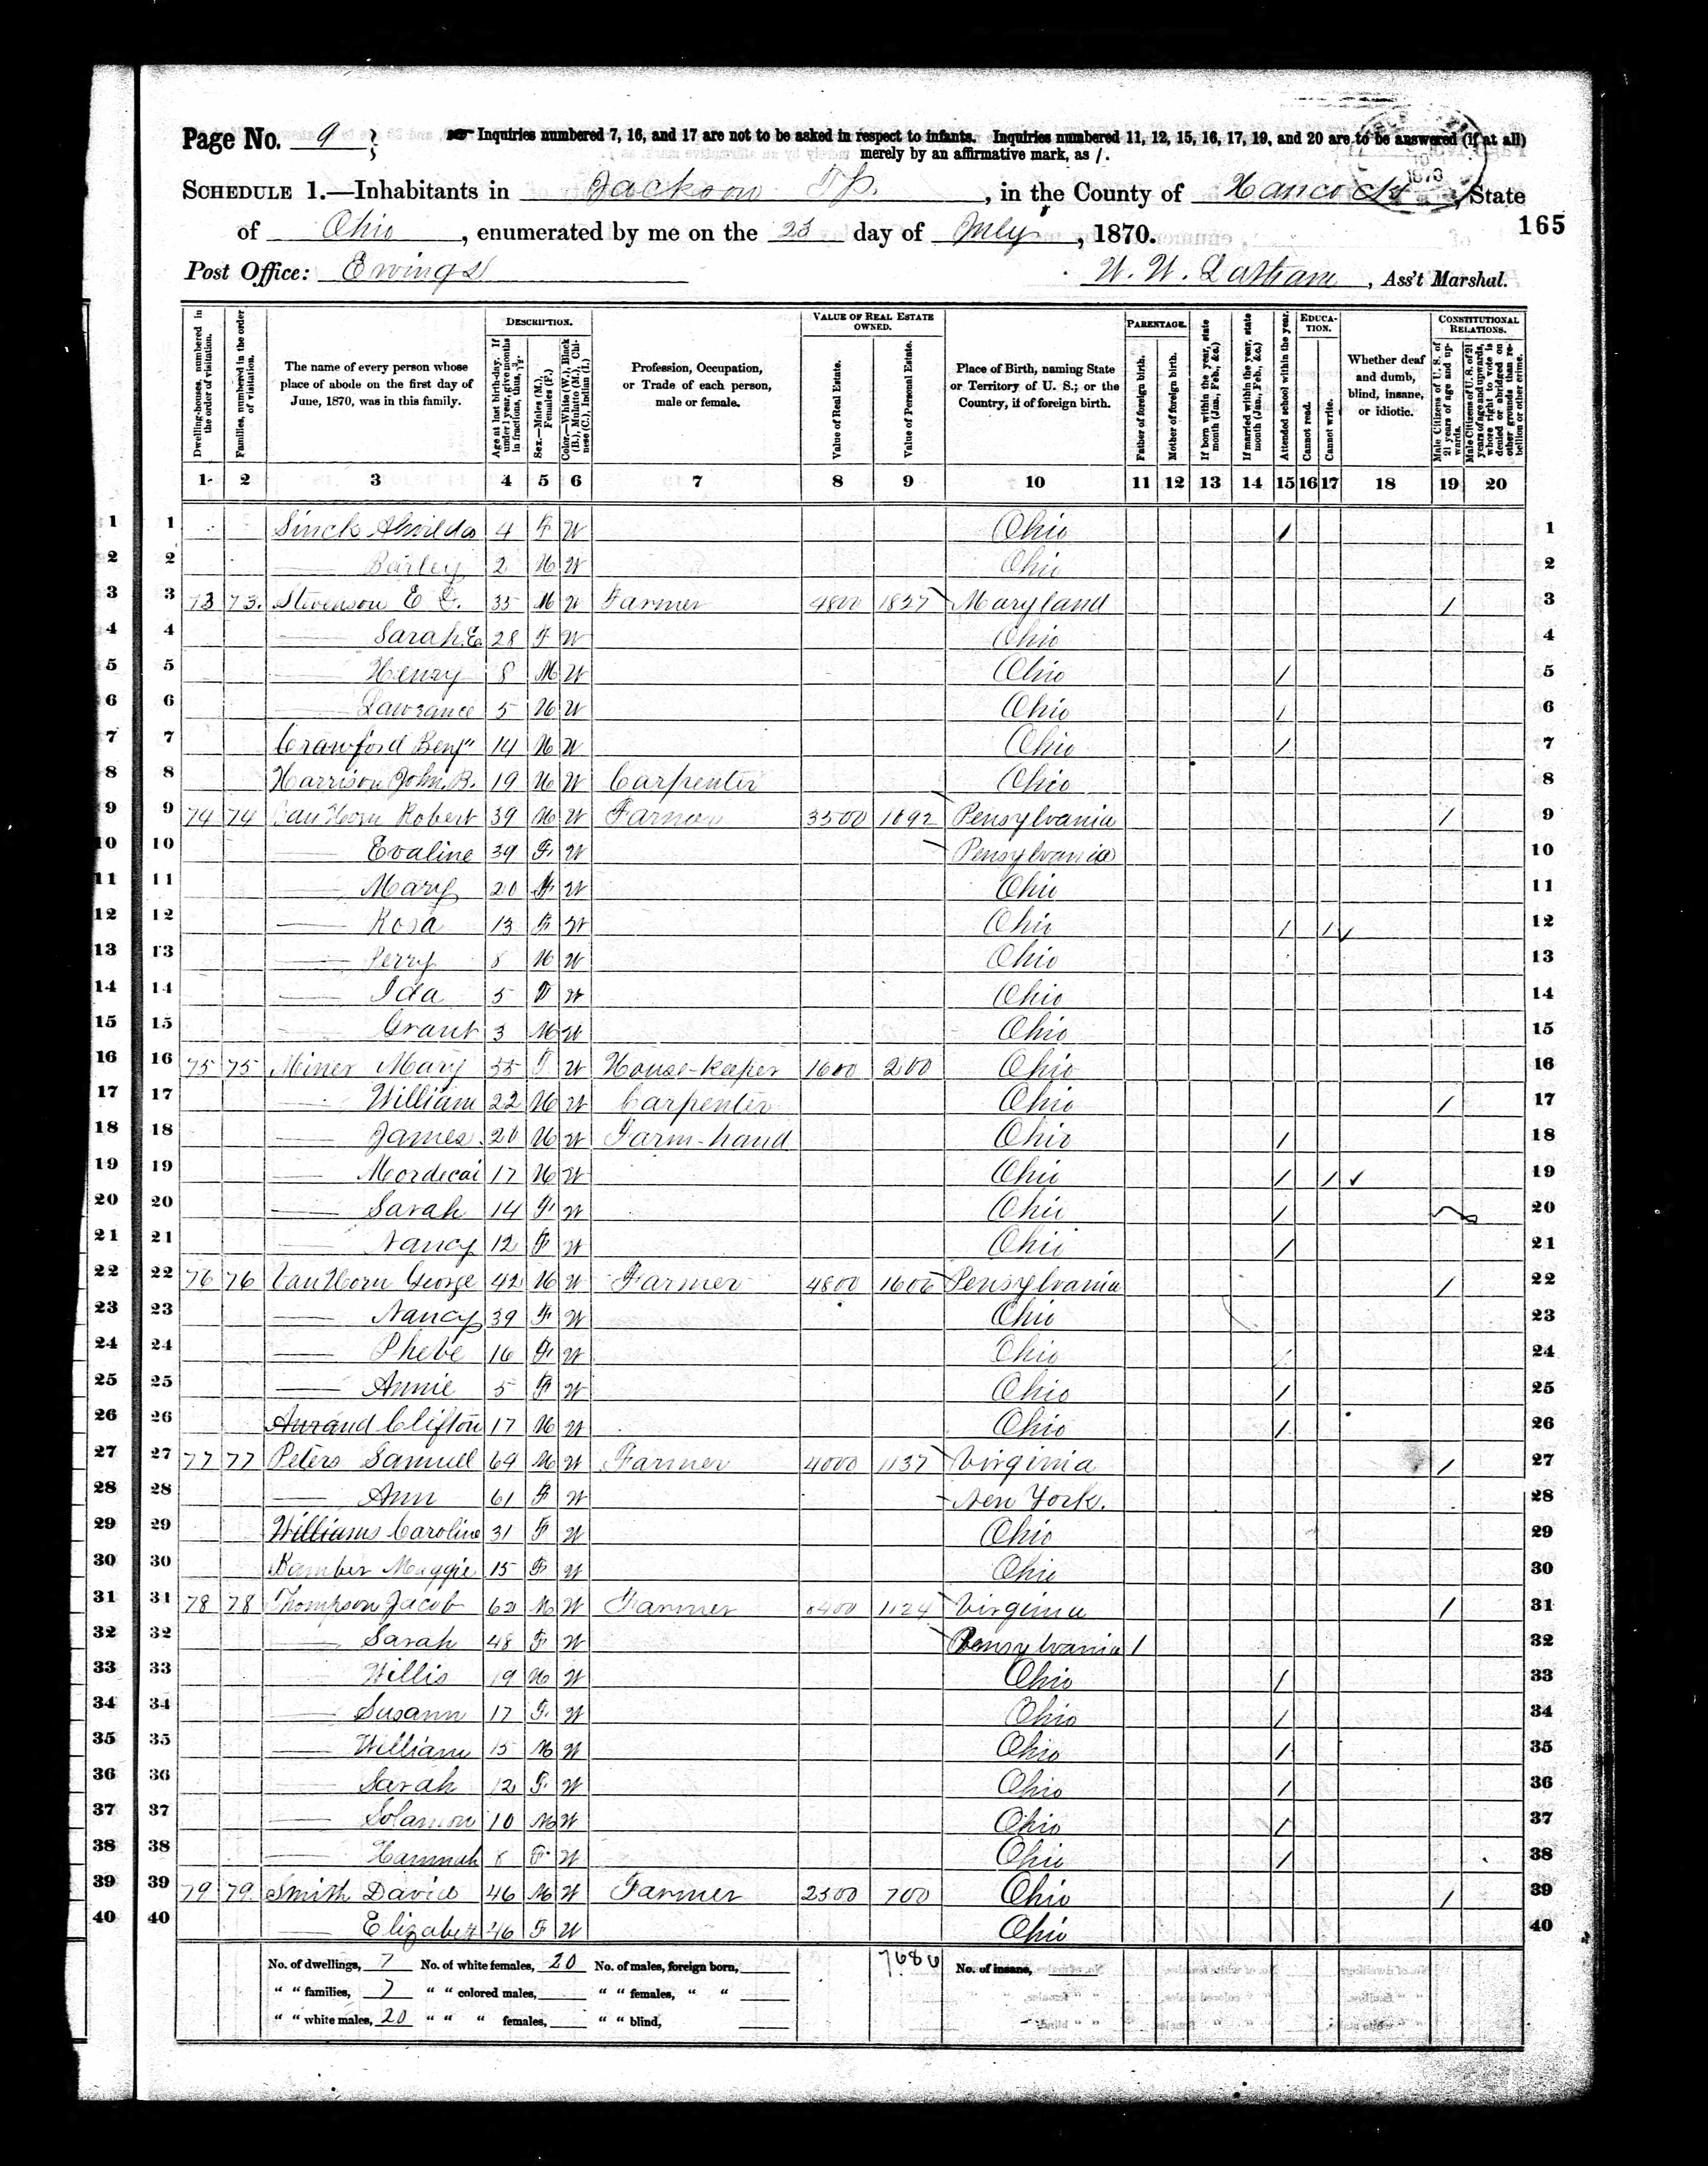 Page No. 9 Inquiries numbered 7, 16, and 17 are not to be asked in respect to infants. Inquiries numbered 11, 12, 15, 16, 17, 19, and 20 are to be answered (if at all)
merely by an affirmative mark, as /.
SCHEDULE 1.—Inhabitants in Jackson Tp. , in the County of Hancock, State
165
of Ohio , enumerated by me on the 23 day of July , 1870.
Post Office: Ewings W. W. Latham , Ass't Marshal.
Dwelling-houses, numbered in the order of visitation.
Families, numbered in the order of visitation.
The name of every person whose place of abode on the first day of June, 1870, was in this family.
DESCRIPTION.
Age at last birth-day. If under 1 year, give months in fractions, thus, 3/12.
Sex.—Males (M.), Females (F.)
Color.—White (W.), Black (B.), Mulatto (M.), Chinese (C.), Indian (I.)
Profession, Occupation, or Trade of each person, male or female.
VALUE OF REAL ESTATE OWNED.
Value of Real Estate.
Value of Personal Estate.
Place of Birth, naming State or Territory of U. S.; or the Country, if of foreign birth.
PARENTAGE.
Father of foreign birth.
Mother of foreign birth.
If born within the year, state month (Jan., Feb., &c.)
If married within the year, state month (Jan., Feb., &c.)
Attended school within the year.
EDUCATION.
Cannot read.
Cannot write.
Whether deaf and dumb, blind, insane, or idiotic.
CONSTITUTIONAL RELATIONS.
Male Citizens of U. S. of 21 years of age and upwards.
Male Citizens of U. S. of 21 years of age and upwards, whose right to vote is denied or abridged on other grounds than rebellion or other crime.
1 2 3 4 5 6 7 8 9 10 11 12 13 14 15 16 17 18 19 20
1 1 Sinck 4 F W Ohio / 1
2 2 —— 2 M W Ohio 2
3 3 73 73. Stevenson E 35 M W Farmer 4800 1827 Maryland / 3
4 4 —— Sarah E 28 F W Ohio 4
5 5 —— Henry 8 M W Ohio / 5
6 6 —— Lawrance 5 M W Ohio / 6
7 7 Crawford Benj" 14 M W Ohio / 7
8 8 Harrison John B. 19 M W Carpenter Ohio 8
9 9 74 74 Van Horn Robert 39 M W Farmer 3500 1092 Pensylvania / 9
10 10 —— Evaline 39 F W Pensylvania 10
11 11 —— Mary 20 F W Ohio 11
12 12 —— Rosa 13 F W Ohio / / ✓ 12
13 13 —— Perry 8 M W Ohio 13
14 14 —— Ida 5 F W Ohio 14
15 15 —— Grant 3 M W Ohio 15
16 16 75 75 Miner Mary 55 F W House-keeper 1600 200 Ohio 16
17 17 —— William 22 M W Carpenter Ohio / 17
18 18 —— James. 20 M W Farm-hand Ohio / 18
19 19 —— Mordecai 17 M W Ohio / / ✓ 19
20 20 —— Sarah 14 F W Ohio / 20
21 21 —— Nancy 12 F W Ohio / 21
22 22 76 76 Van Horn George 42 M W Farmer 4800 1606 Pensylvania / 22
23 23 —— Nancy 39 F W Ohio 23
24 24 —— Phebe 16 F W Ohio / 24
25 25 —— Annie 5 F W Ohio / 25
26 26 Aurand Clifton 17 M W Ohio / 26
27 27 77 77 Peters Samuel 69 M W Farmer 4000 1137 Virginia / 27
28 28 —— Ann 61 F W New York. 28
29 29 Williams Caroline 31 F W Ohio 29
30 30 Maggie 15 F W Ohio 30
31 31 78 78 Thompson Jacob 62 M W Farmer 1124 Virginia / 31
32 32 —— Sarah 48 F W Pensylvania / 32
33 33 —— Willis 19 M W Ohio / 33
34 34 —— Susann 17 F W Ohio / 34
35 35 —— William 15 M W Ohio / 35
36 36 —— Sarah 12 F W Ohio / 36
37 37 —— Solamon 10 M W Ohio / 37
38 38 —— Hannah 8 F W Ohio / 38
39 39 79 79. Smith David 46 M W Farmer 2500 700 Ohio / 39
40 40 —— Elizabet 46 F W Ohio 40
No. of dwellings, 7 No. of white females, 20 No. of males, foreign born, 7686 No. of insane,
" " families, 7 " " colored males, " " females, " "
" " white males, 20 " " " females, " " blind,